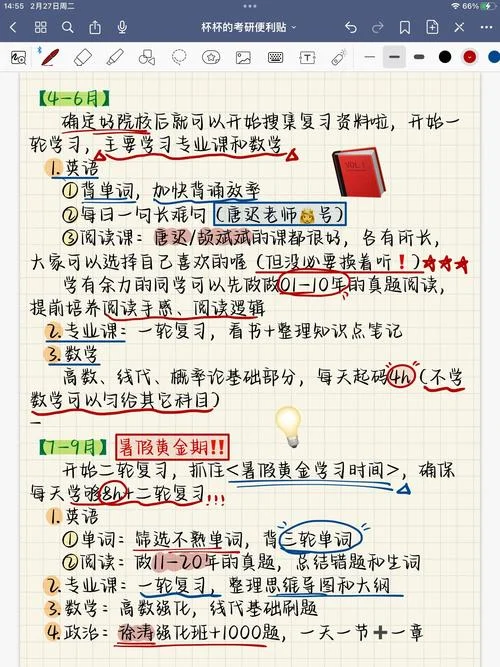 14:55 2月27日周二
66%
杯杯的考研便利贴
【4-6月】
确定好院校后就可以开始搜集复习资料啦，开始一
轮学习，主要学习专业课和数学
1.英语
①背单词，加快背诵效率
②每日一句长难句（唐迟老师号）
③阅读课：唐迟/颉斌斌的课都很好，各有所长，
大家可以选择自己喜欢的喔（但没必要换着听！）★★★
学有余力的同学可以先做做01-10年的真题阅读，
提前培养阅读手感、阅读逻辑
2.专业课：一轮复习，看书+整理知识点笔记
3.数学
高数、线代、概率论基础部分，每天起码4h（不学
数学可以匀给其它科目）
VOL.1
【7-9月】暑假黄金期!!
开始二轮复习，抓住<暑假黄金学习时间>，确保
每天学够8h+二轮复习!!!
1.英语
①单词：筛选不熟单词，背三轮单词
②阅读：做11-20年的真题，总结错题和生词
2.专业课：一轮复习，整理思维导图和大纲
3.数学：高数强化，线代基础刷题
4.政治：徐涛强化班+1000题，一天一节+一章